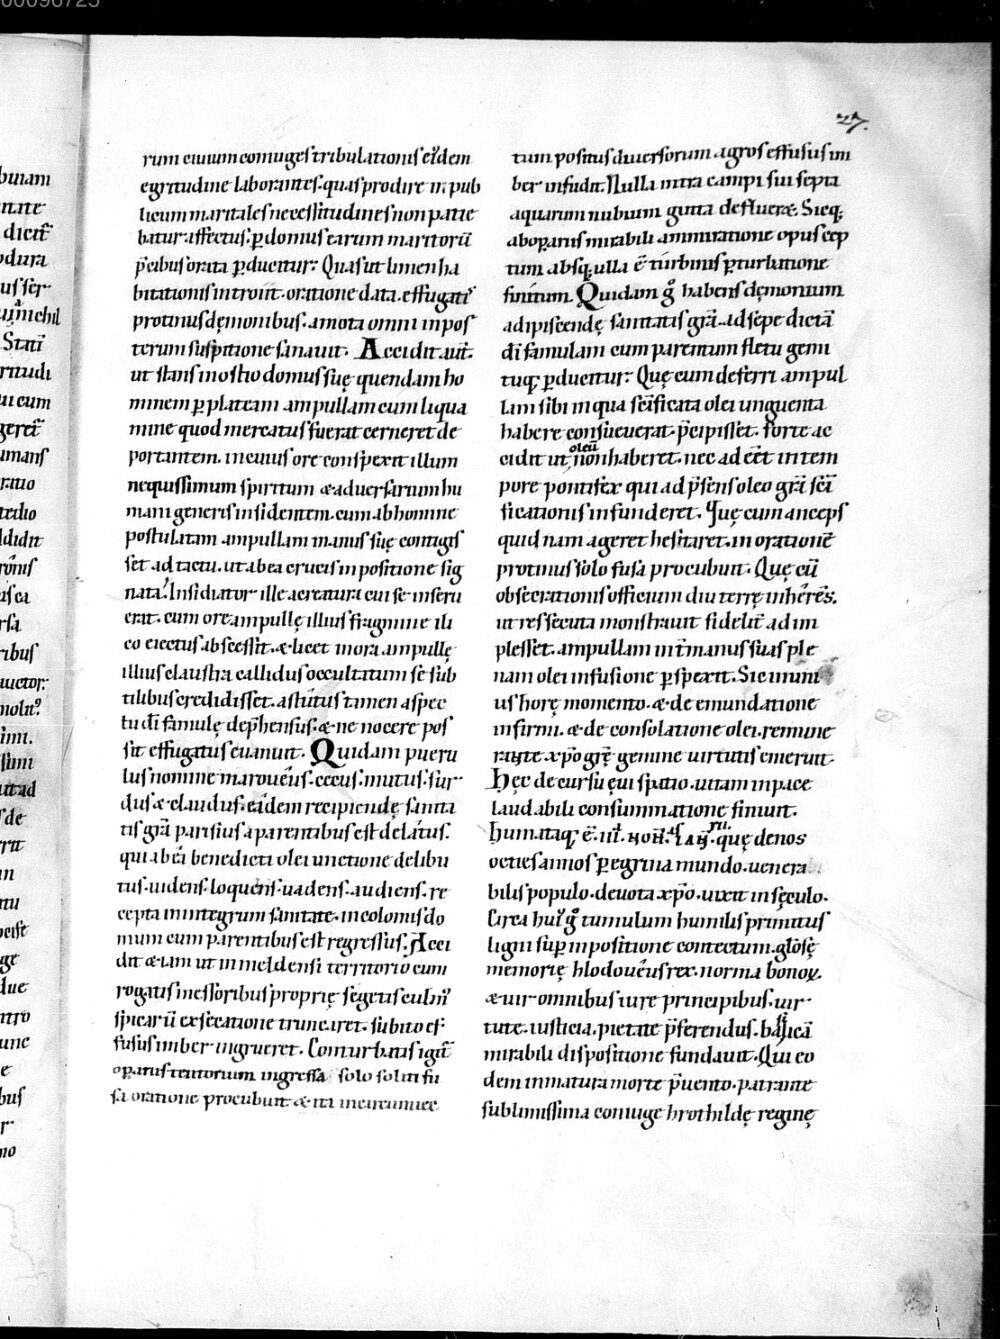 00096725
27.
rum ciuium coniuges tribulationis eidem
egritudine laborantes. quas prodire in pub
licum maritales necessitudines non patie
batur affectus. p̄ domus earum maritorū
p̄cibus orata p̄ducitur: Quas ut limen ha
bitationis introiit. oratione data. effugatis
protinus dęmonibus. amota omni in pos
terum suspitione sanauit. Accidit aut̄.
ut stans in ostio domus suę quendam ho
minem p̄ plateam ampullam cum liqua
mine quod mercatus fuerat cerneret de
portantem. in cuius ore conspexit illum
nequissimum spiritum & aduersarium hu
mani generis insidentem. cum ab homine
postulatam ampullam manus suę contigis
set ad tactu. ut ab ea crucis inpositione sig
nata. Insidiator ille a creatura cui se inseru
erat. cum ore ampullę illius fragmine ili
co eiectus abscessit. & licet in ora ampullę
illius claustra callidus occultitum se sub
tilibus credidisset. astutus tamen aspec
tu dī famulę dep̄hensus. & ne nocere pos
sit effugatus euanuit. Quidam pueru
lus nomine marouēus. cęcus. mutus. sur
dus & claudus. eādem recipiendę sanita
tis grā parisius a parentibus est delatus.
qui a beī benedicti olei unctione delibu
tus. uidens. loquens. uadens. audiens. re
cepta in integrum sanitate. incolomis do
mum cum parentibus est regressus. Acci
dit & iam ut in meldensi territorio cum
rogatis messoribus proprię segetis culm̄
spicarū exsecatione trunciret. subito ef
fusus imber ingrueret. Conturbatis igit̄
operarius tentorium ingressa solo soliti fu
sa oratione procubuit & ita in circumiec
tum positus diuersorum agros effusus im
ber infudit. Nulla intra campi sui septa
aquarum nubium gutta deflueret. Sicq;
ab operariis mirabili ammiratione opus cep
tum absq; ulla ē turbinis p̄turbatione
finitum. Quidam ḡ habens dęmonium
adipiscendę sanitatis grā. ad sepe dictā
dī famulam cum parentum fletu gemi
tuq; p̄ducitur: Quę cum deferri ampul
lam sibi in qua scīficata olei unguenta
habere consueuerat. p̄cipisset. forte ac
cidit ut oleū non haberet. nec adēēt in tem
pore pontifex qui ad p̄sens oleo grā scī
ficationis infunderet. Quę cum anceps
quid nam ageret hesitaret. in orationē
protinus solo fusa procubuit. Quę cū
obsecrationis officium diu terrę inhērēs.
ut res secuta monstrauit fidelit̄ adim
plesset. ampullam int̄ manus suas ple
nam olei infusione p̄spexit. Sic in uni
us horę momento. & de emundatione
infirmi. & de consolatione olei. remune
rante xp̄o grę̄ gemine uirtutis emeruit.
Hęc decursu eui spatio. uitam in pace
laudabili consummatione finiuit.
Humataq; ē. iii. non. ianrii. quę denos
octies annos peregrina mundo. uenera
bilis populo. deuota xp̄o. uixit in sęculo.
Circa hui' ḡ tumulum humilis primitus
ligni sup̄ inpositione contectum. glōsę
memorię hlodouēus rex. norma bonoꝝ.
& uir omnibus iure principibus. uir
tute. iusticia. pietate p̄ferendus. basilicā
mirabili dispositione fundauit. Qui eo
dem inmatura morte p̄uento. patrante
sublimissima coniuge hrothildę reginę